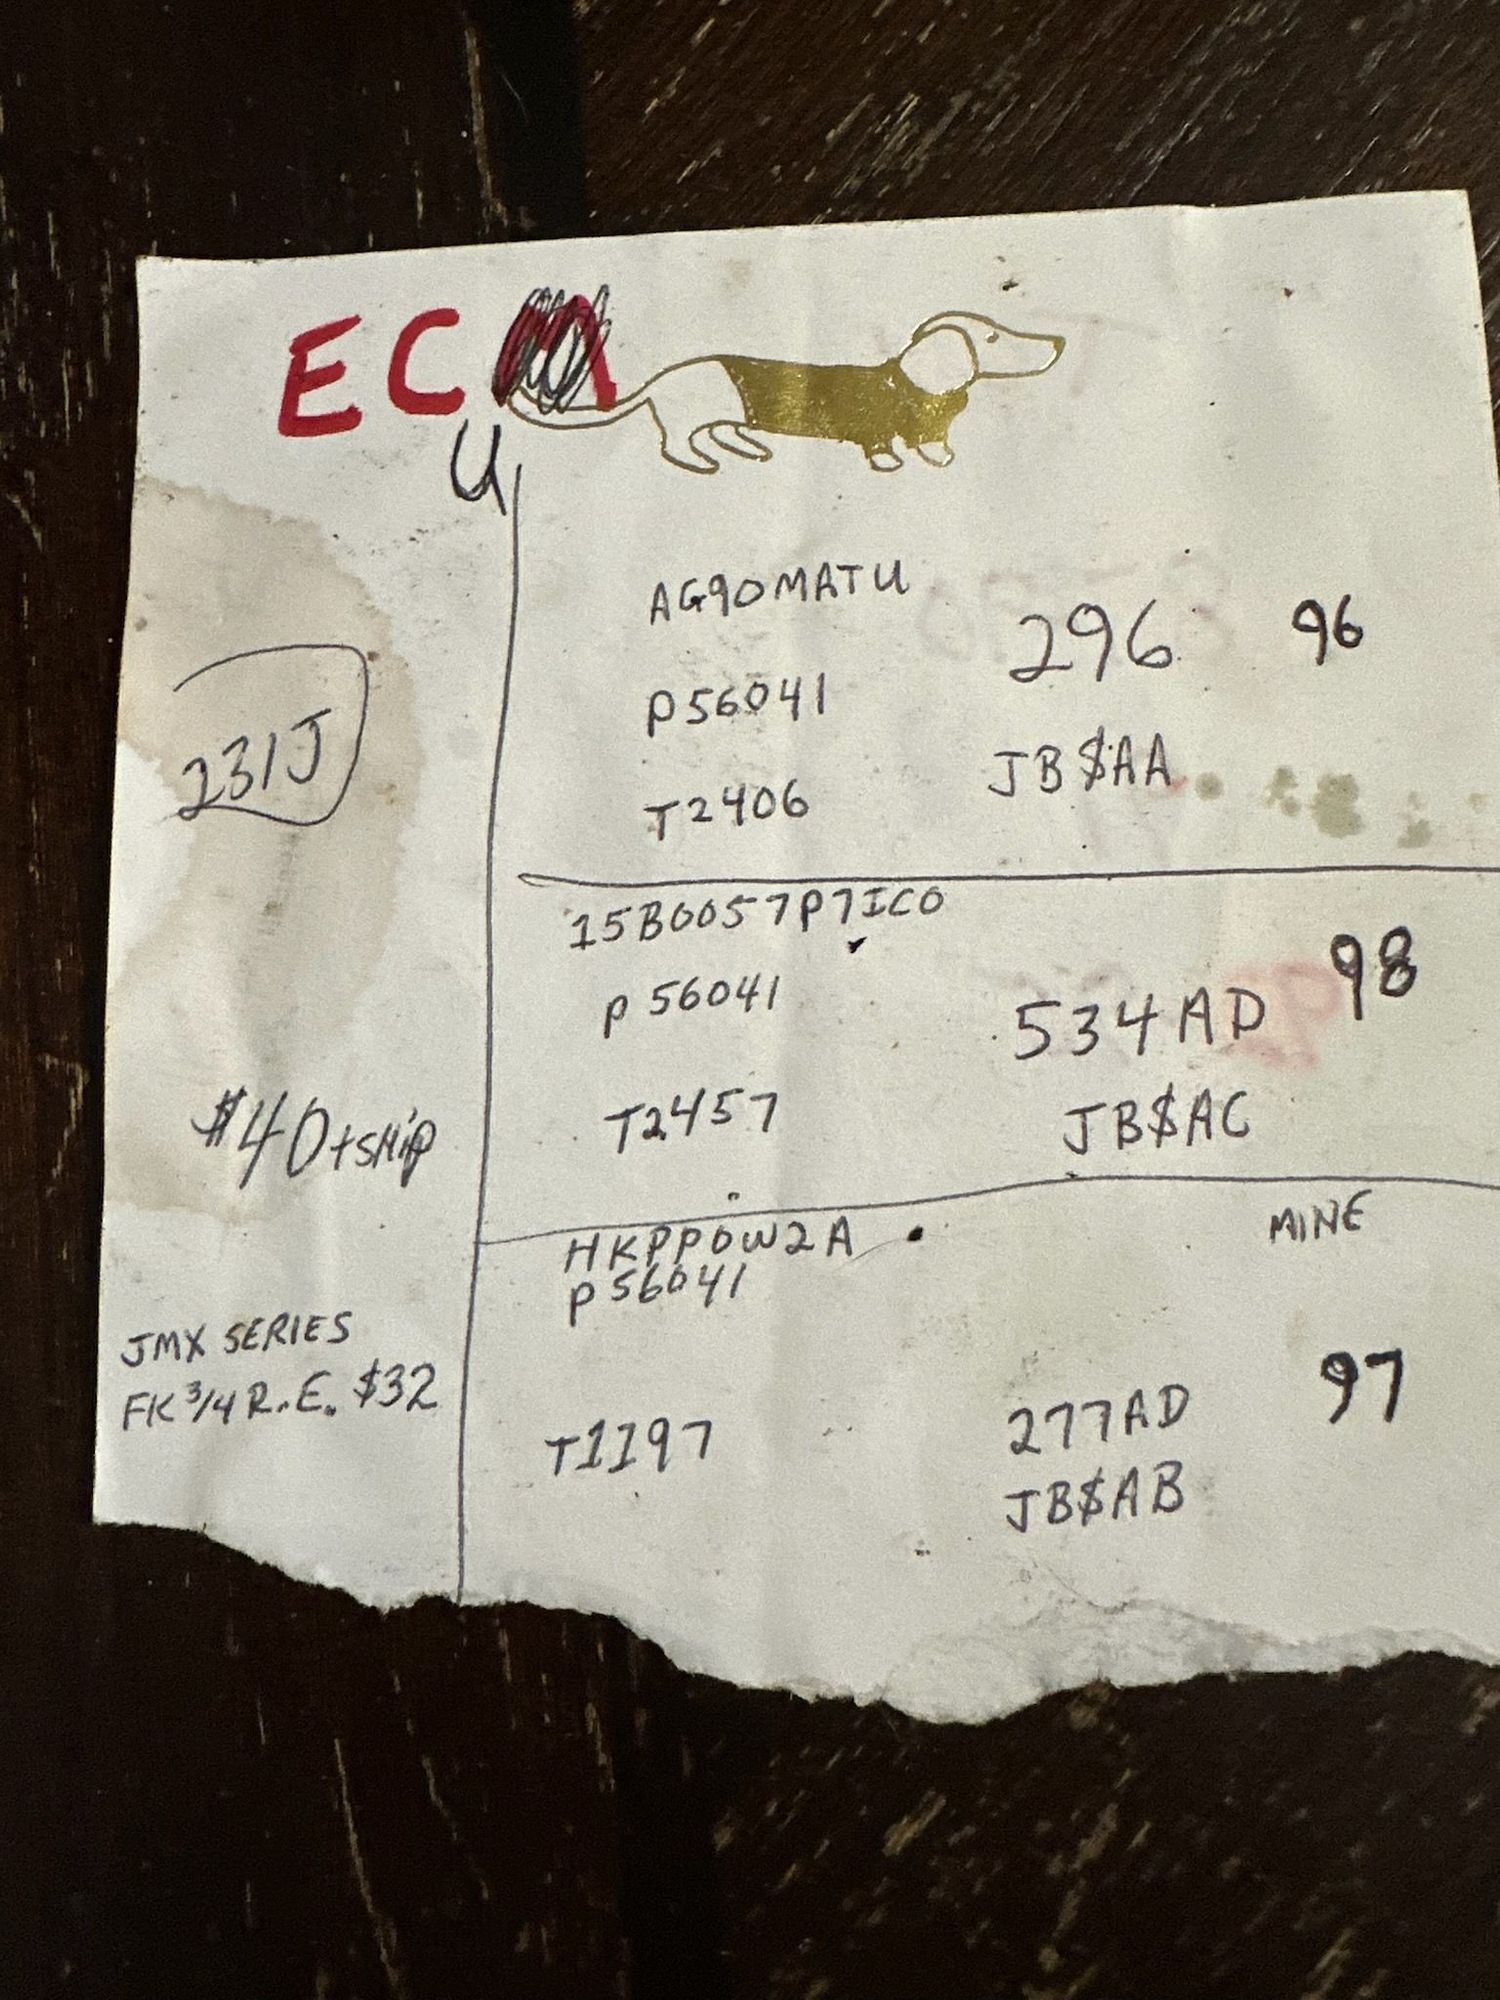 EC
U
231J
$40+SHIP
JMX SERIES
FK 3/4 R.E. $32
AG90MATU
P56041
T2406
296
96
JB$AA
15B0057P7ICO
P 56041
T2457
98
534AD
JB$AC
HKPP0W2A
P56041
T1197
MINE
97
277AD
JB$AB